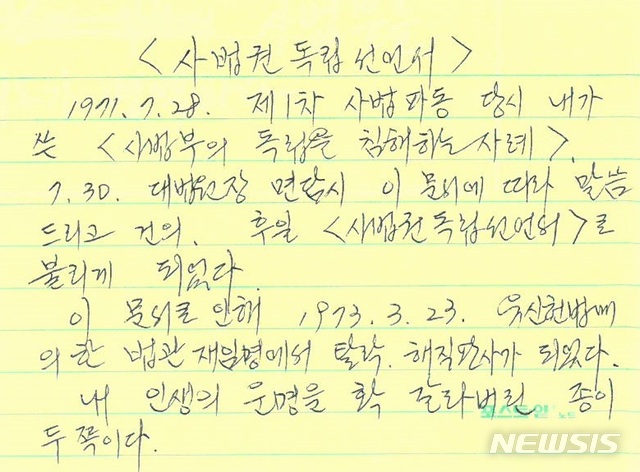 <사법권 독립선언서>
1971.7.28. 제1차 사법파동 당시 내가
쓴 <사법부의 독립을 침해하는 사례>.
7.30. 대법원장 면담시 이 문서에 따라 말씀
드리고 건의. 후일 <사법권독립선언서>로
불리게 되었다.
이 문서로 인해 1973.3.23. 유신헌법에
의한 법관 재임명에서 탈락. 해직판사가 되었다.
내 인생의 운명을 확 갈라버린 종이
포스트잇 노트
두 쪽이다.
NEWSIS